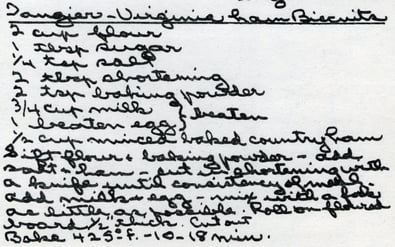 Tangier - Virginia Ham Biscuits
2 cup flour
1 tbsp sugar
1/4 tsp salt
2 tbsp shortening
2 tsp baking powder
3/4 cup milk } beaten
1 beaten egg }
1/2 cup minced baked country ham
Sift flour + baking powder - add
salt + ham - cut in shortening with
a knife until consistency of meal.
add milk + egg - mix with a fork
as little as possible. Roll on floured
board 1/2 thick. Cut out
Bake 425° f. - 10 - 18 min.